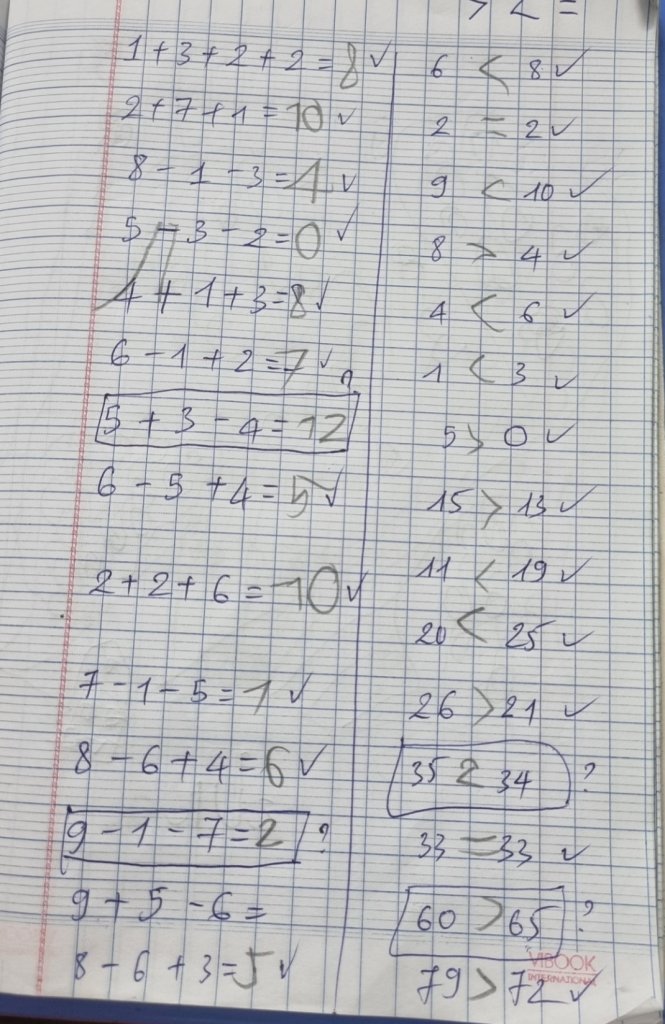 > < =
1 + 3 + 2 + 2 = 8 ✓
2 + 7 + 1 = 10 ✓
8 - 1 - 3 = 4 ✓
5 - 3 - 2 = 0 ✓
4 + 1 + 3 = 8 ✓
6 - 1 + 2 = 7 ✓
5 + 3 - 4 = 12 ?
6 - 5 + 4 = 5 ✓
2 + 2 + 6 = 10 ✓
7 - 1 - 5 = 1 ✓
8 - 6 + 4 = 6 ✓
9 - 1 - 7 = 2 ?
9 + 5 - 6 =
8 - 6 + 3 = 5 ✓
6 < 8 ✓
2 = 2 ✓
9 < 10 ✓
8 > 4 ✓
4 < 6 ✓
1 < 3 ✓
5 > 0 ✓
15 > 13 ✓
11 < 19 ✓
20 < 25 ✓
26 > 21 ✓
35 2 34 ?
33 = 33 ✓
60 > 65 ?
79 > 72 ✓
VIBOOK
INTERNATIONAL